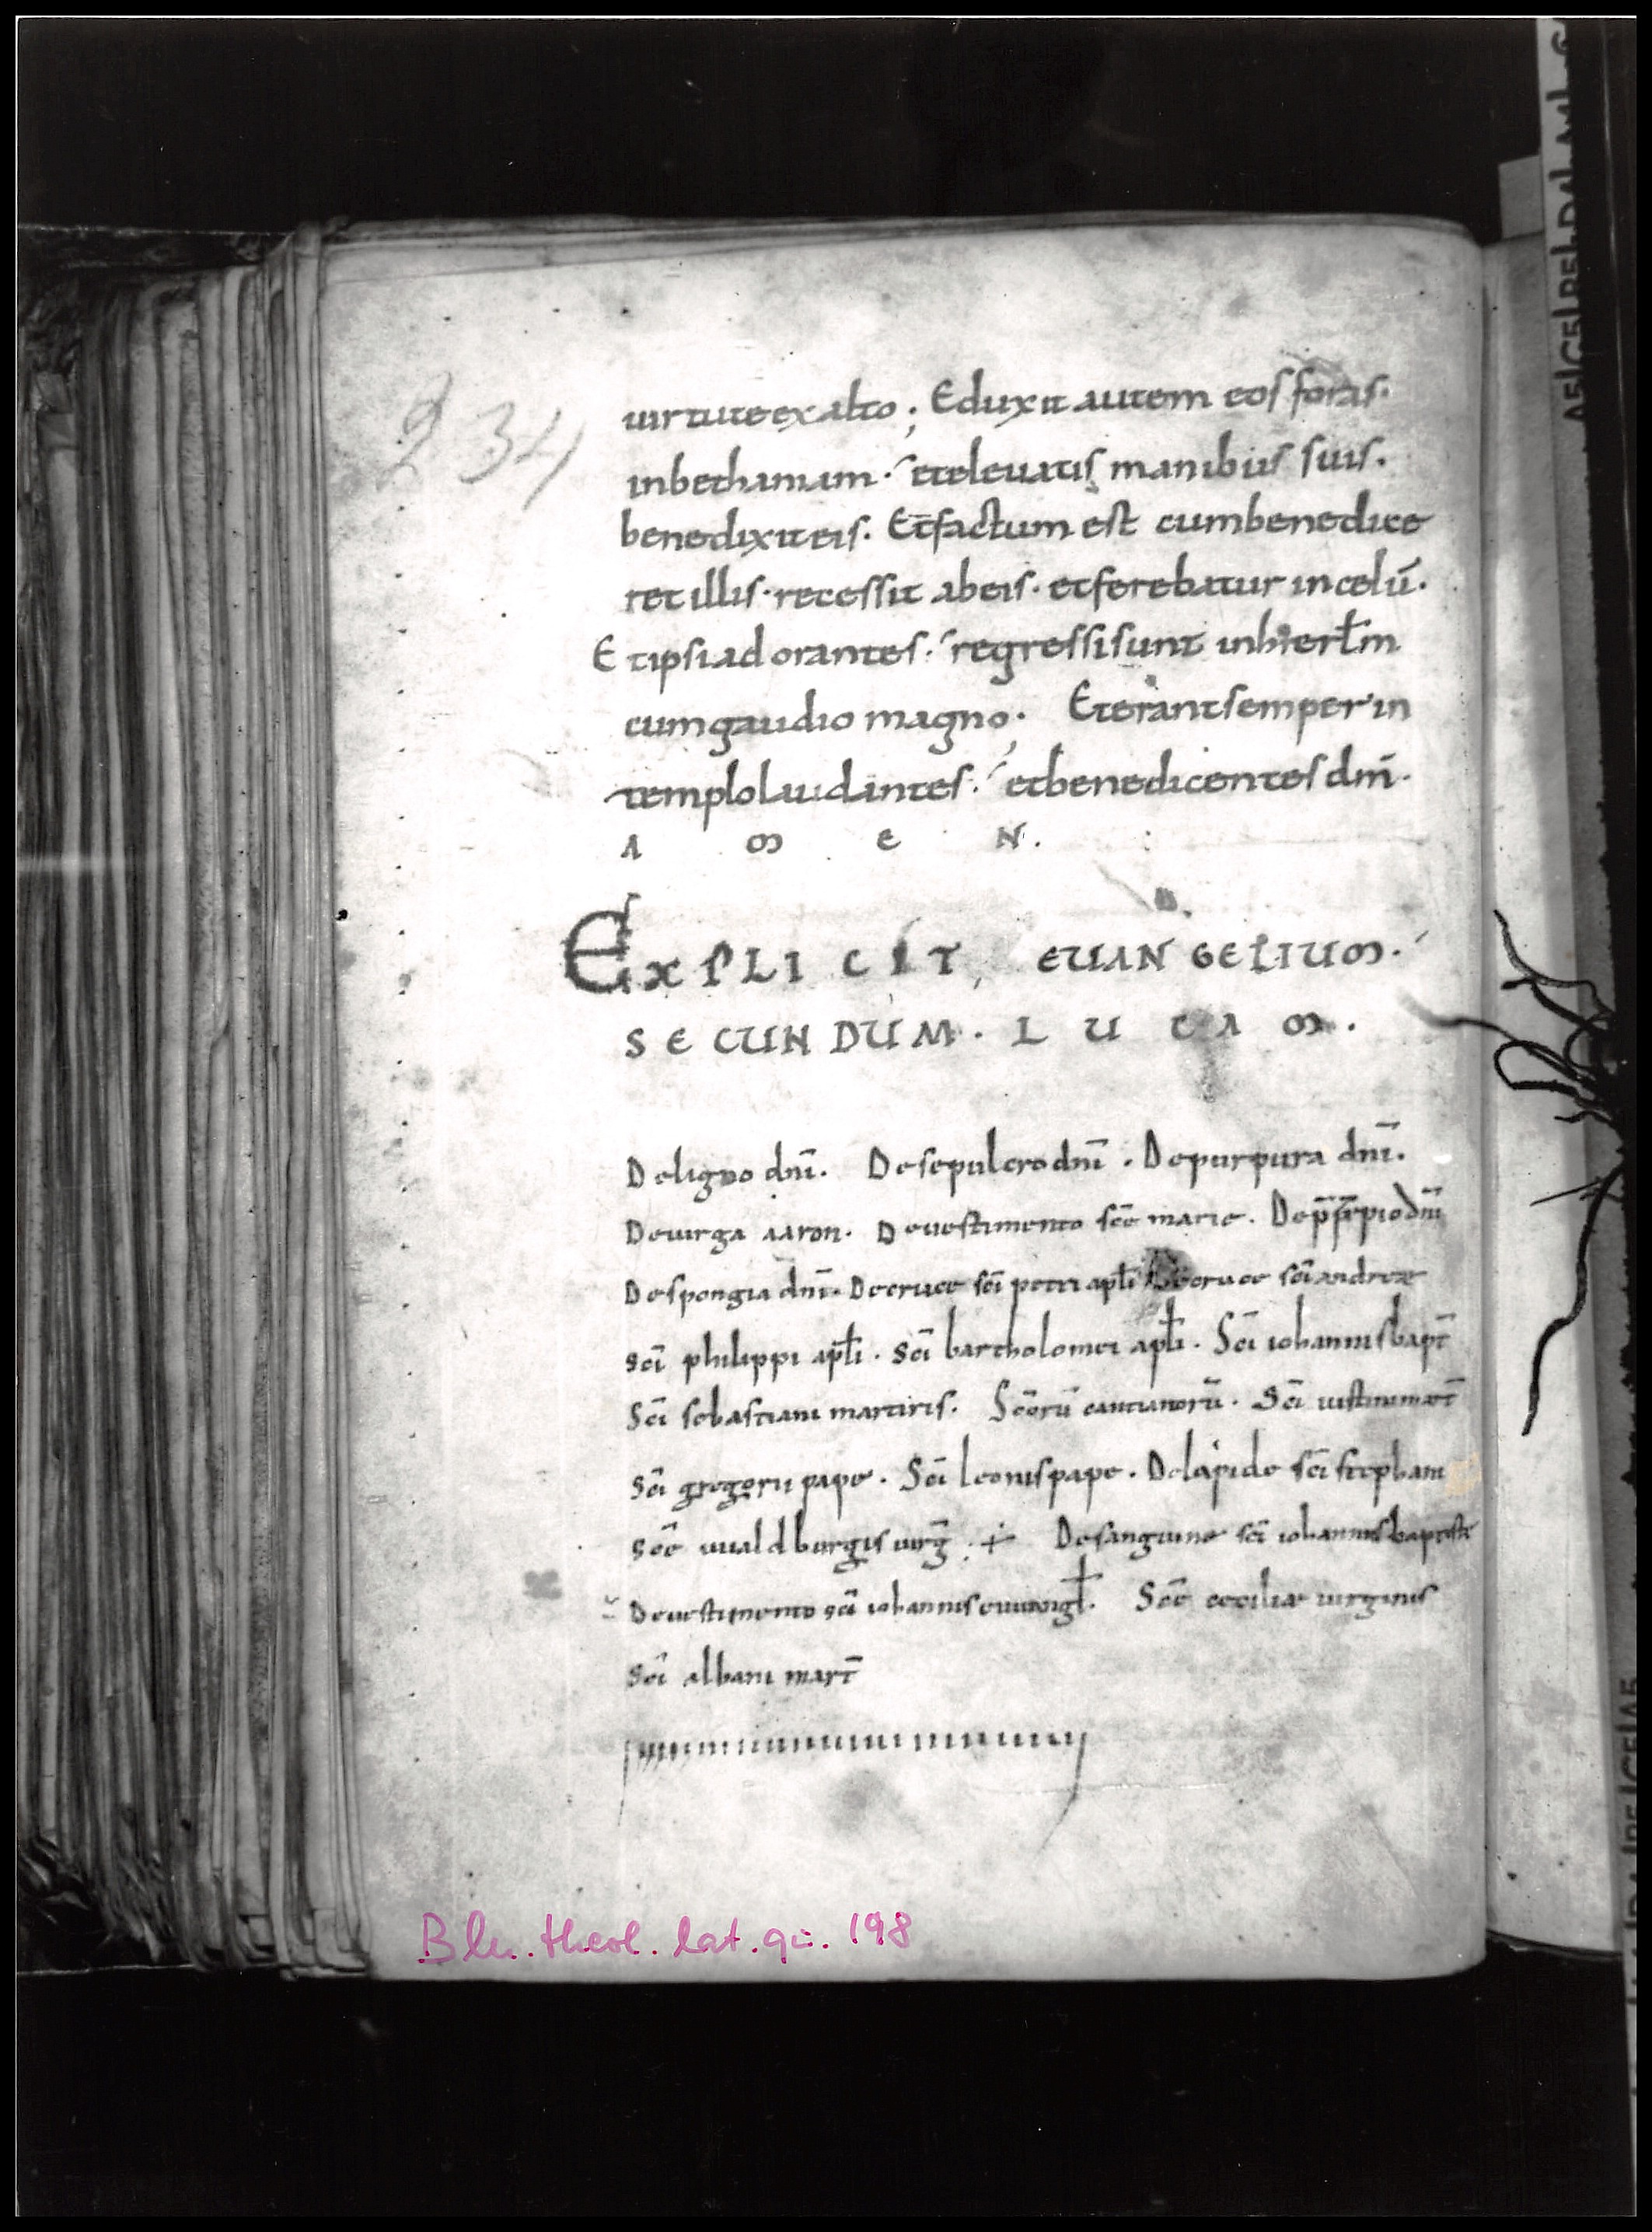 234
uirtute ex alto; Eduxit autem eos foras.
in bethaniam. et eleuatis manibus suis.
benedixit eis. Et factum est cum benedice
ret illis. recessit ab eis. et ferebatur in celū.
Et ipsi adorantes. regressi sunt in hierłm
cum gaudio magno. Et erant semper in
templo laudantes. et benedicentes dm̄.
AMEN.
EXPLICIT, EUANGELIUM.
SECUNDUM. LUCAM.
De ligno dnī. De sepulcro dnī. De purpura dnī.
De uirga aaron. De uestimento scē marie. De p̄sepio dnī
De spongia dnī. De cruce scī petri apłi De cruce scī andreae
scī philippi apłi. scī bartholomei apłi. Scī iohannis bapt̄
Scī sebastiani martiris. Scōrū cantianorū. Scī iustini mart̄
Scī gregorii pape. Scī leonis pape. De lapide scī stephani
Scē uualdburgis uirḡ. + De sanguine scī iohannis baptiste
De uestimento scī iohannis euuangł. Scē ceciliae uirginis
Scī albani mart̄
Bln. theol. lat. qu. 198